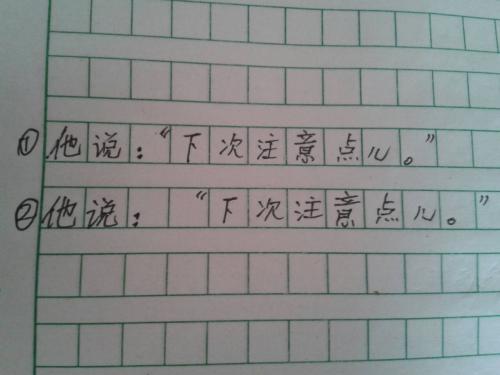 ①他说：“下次注意点儿。”
②他说： “下次注意点儿。”